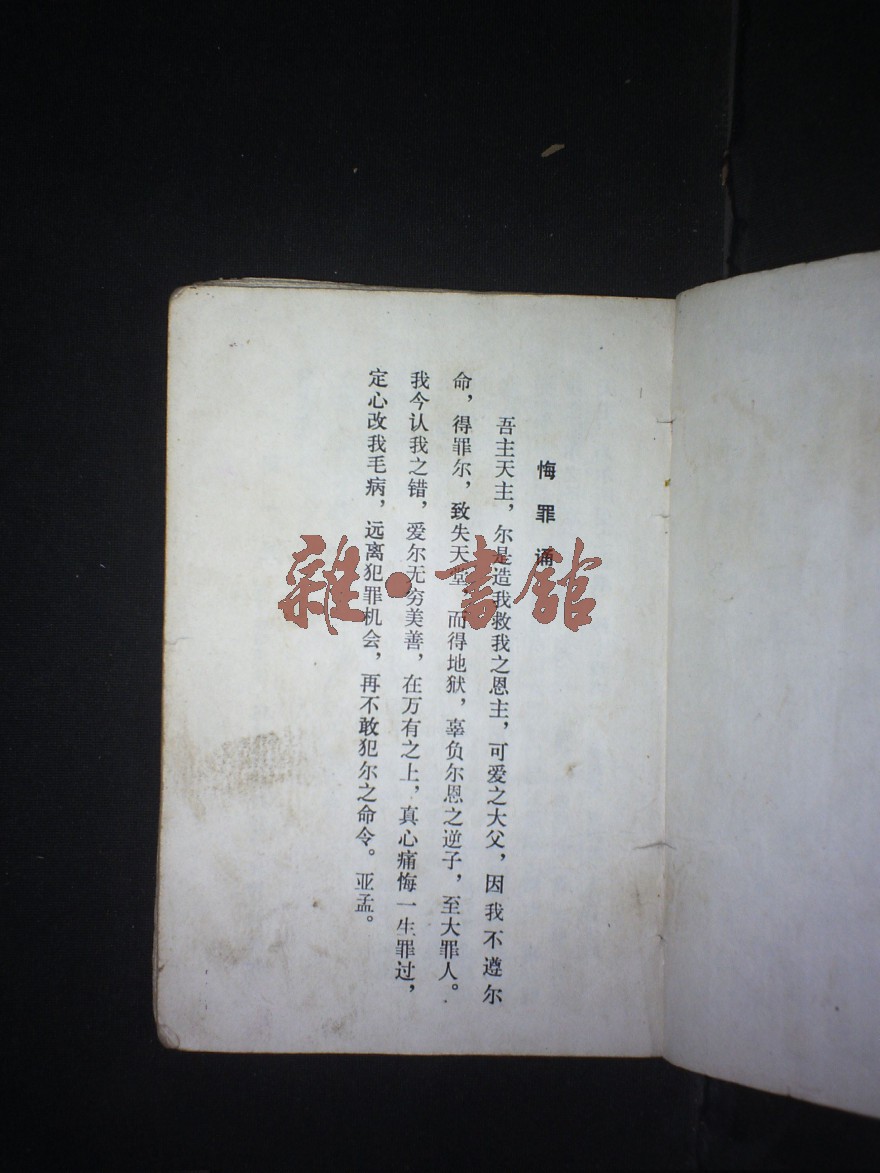 悔罪诵
吾主天主，尔是造我救我之恩主，可爱之大父，因我不遵尔
命，得罪尔，致失天堂　而得地狱，辜负尔恩之逆子，至大罪人。
我今认我之错，爱尔无穷美善，在万有之上，真心痛悔一生罪过，
定心改我毛病，远离犯罪机会，再不敢犯尔之命令。亚孟。
雜·書館